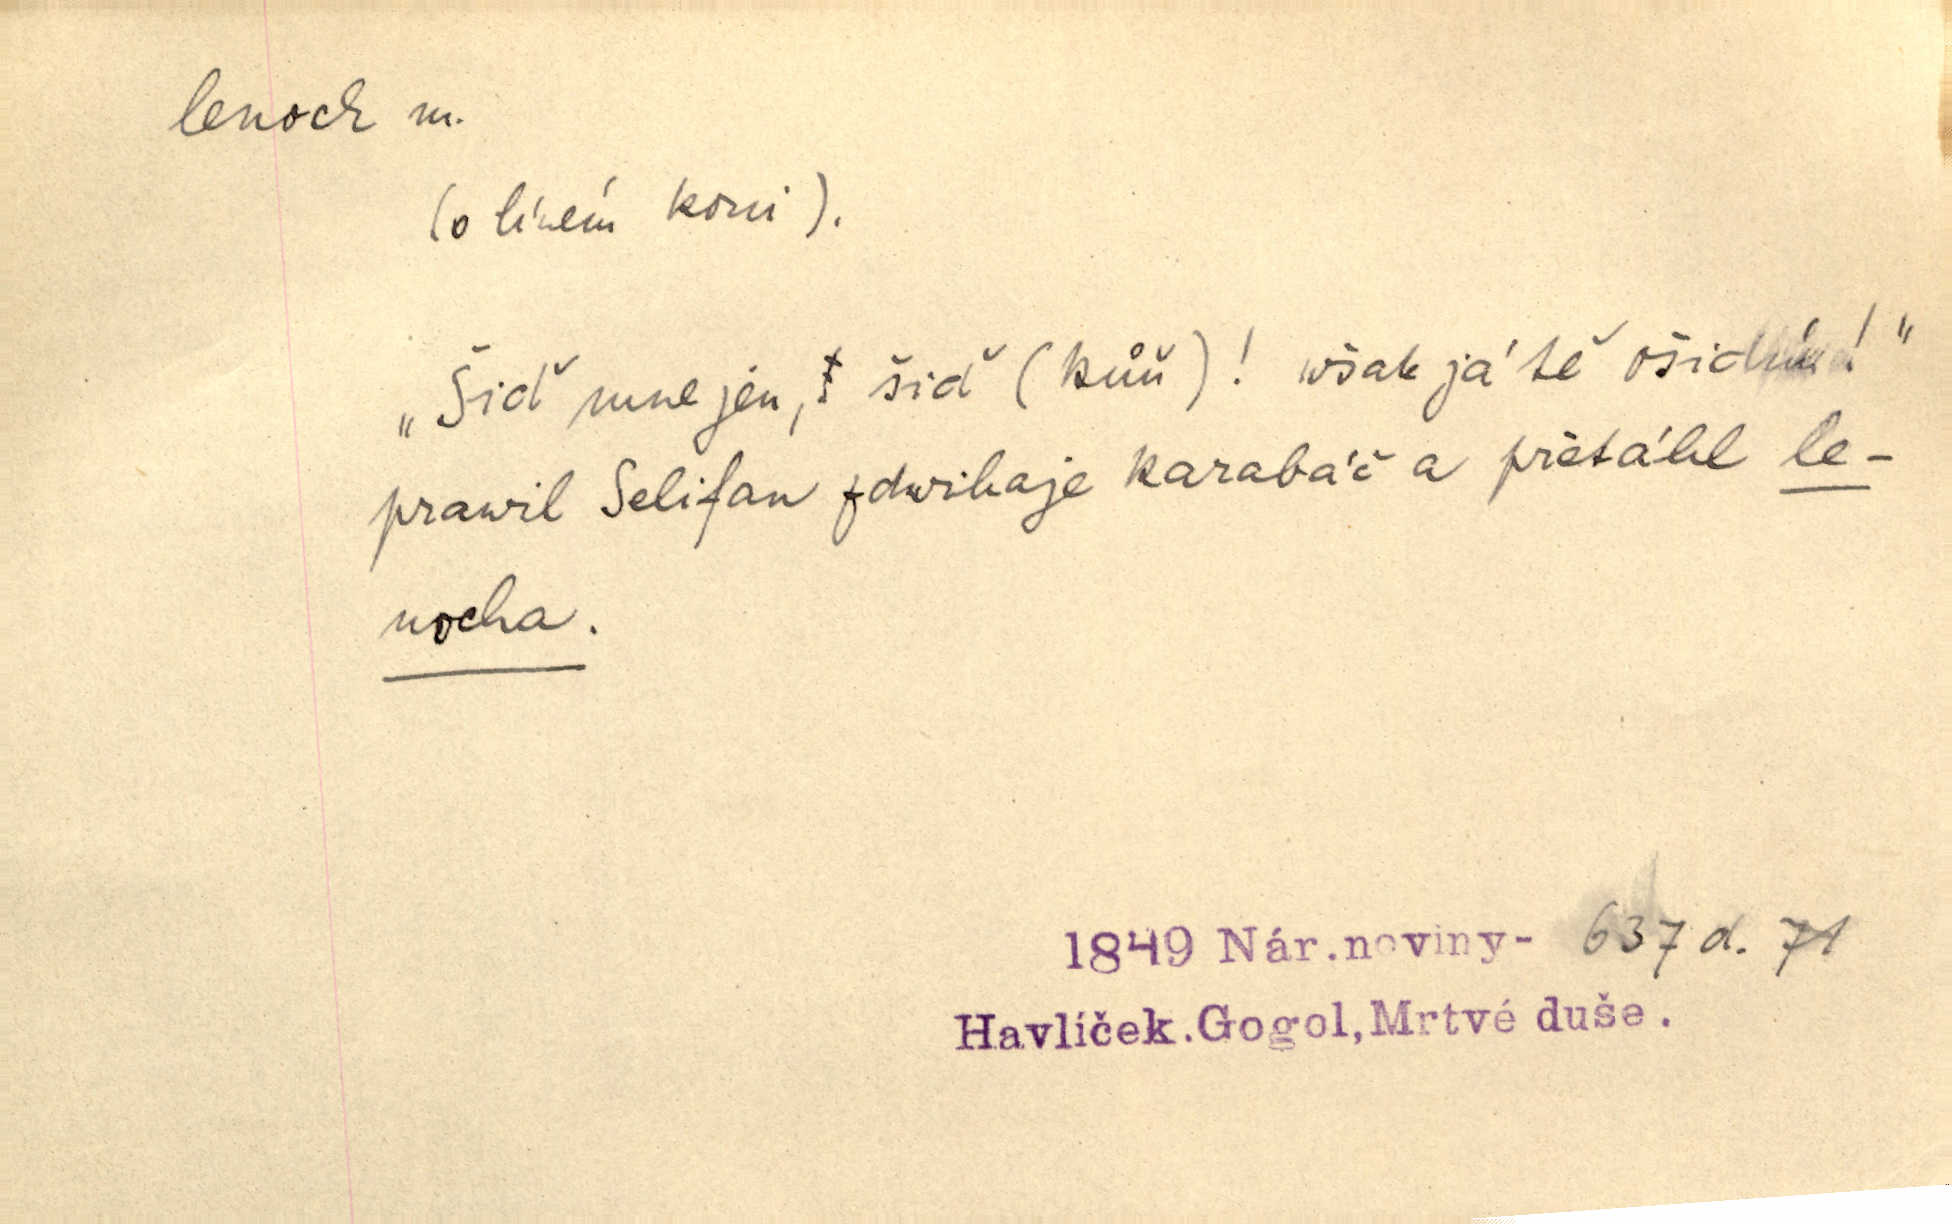 lenoch m.
(o líném koni).
„Šiď mne jen, šiď (kůň)! wšak já tě ošidím!"
prawil Selifan zdwihaje karabáč a přetáhl le-
nocha.
1849 Nár.noviny- 637 d. 71
Havlíček.Gogol,Mrtvé duše.